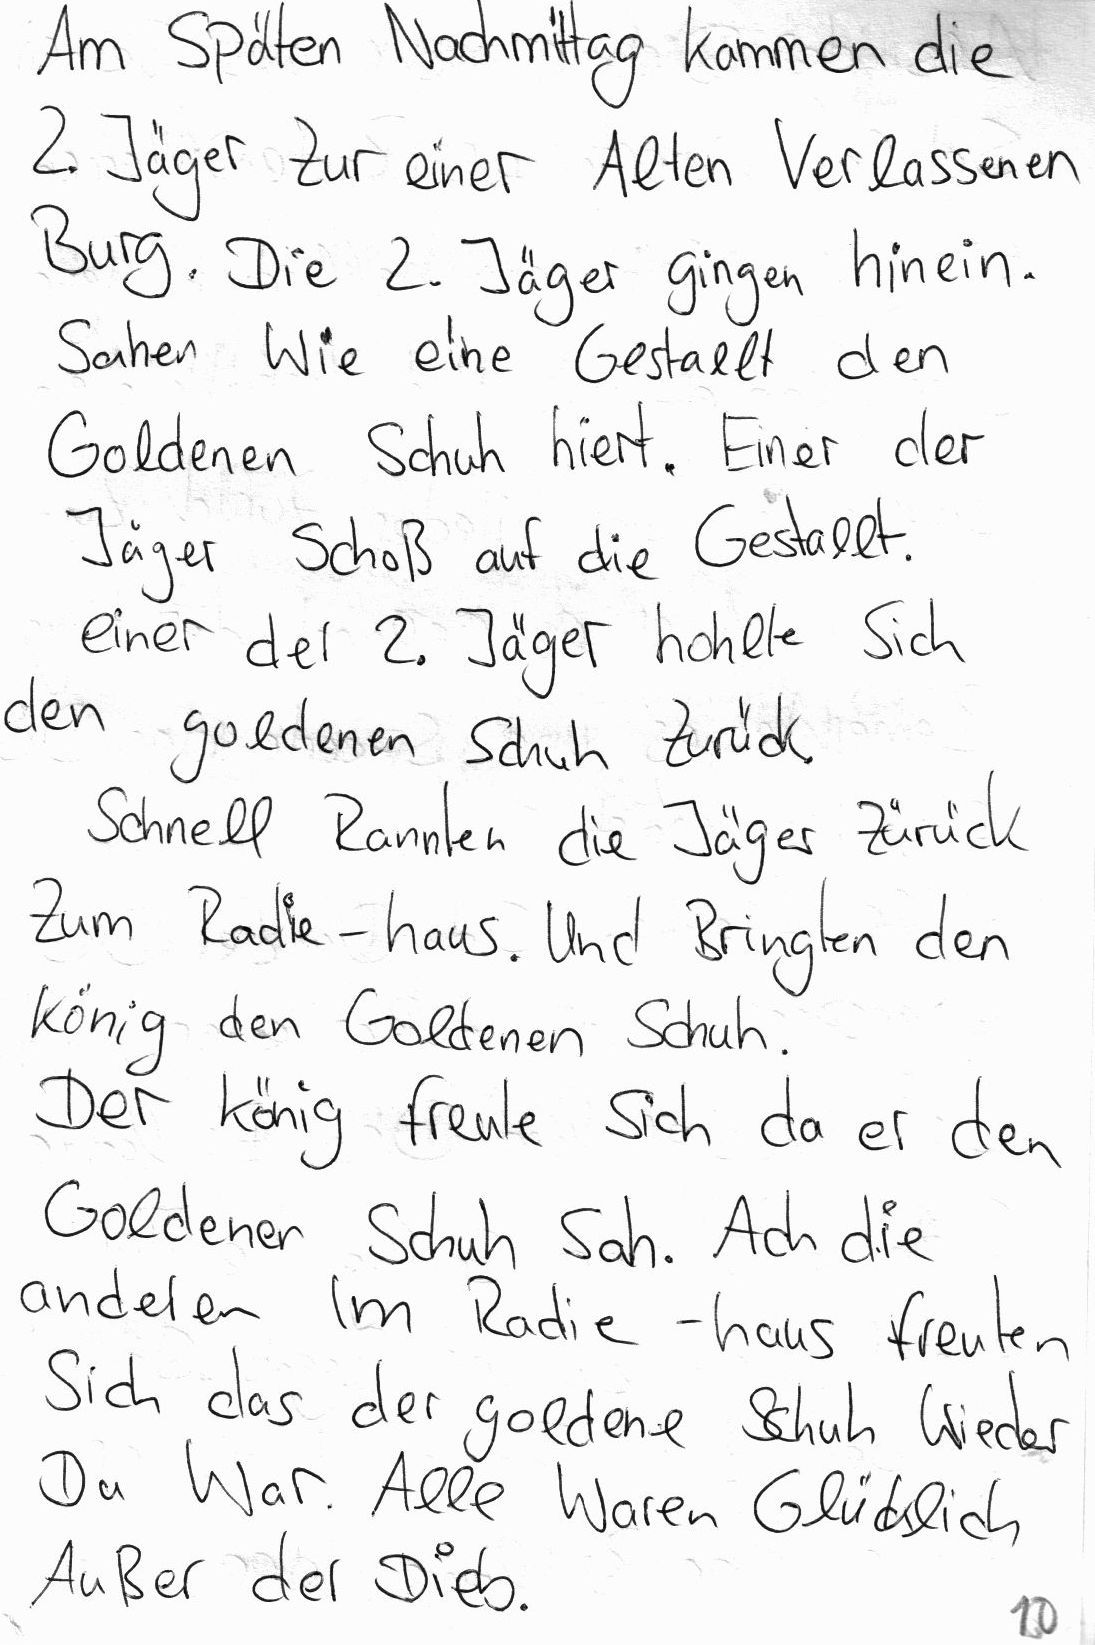 Am Späten Nachmittag kammen die
2. Jäger zur einer Alten Verlassenen
Burg. Die 2. Jäger gingen hinein.
Sahen Wie eine Gestallt den
Goldenen Schuh hiert. Einer der
Jäger Schoß auf die Gestallt.
einer der 2. Jäger hohlte Sich
den goldenen Schuh Zurück.
Schnell Rannten die Jäger Zürück
Zum Radie-haus. Und Bringten den
König den Goldenen Schuh.
Der König freute Sich da er den
Goldener Schuh Sah. Ach die
anderen Im Radie-haus freuten
Sich das der goldene Schuh Wieder
Da War. Alle Waren Glücklich
Außer der Dieb.
10